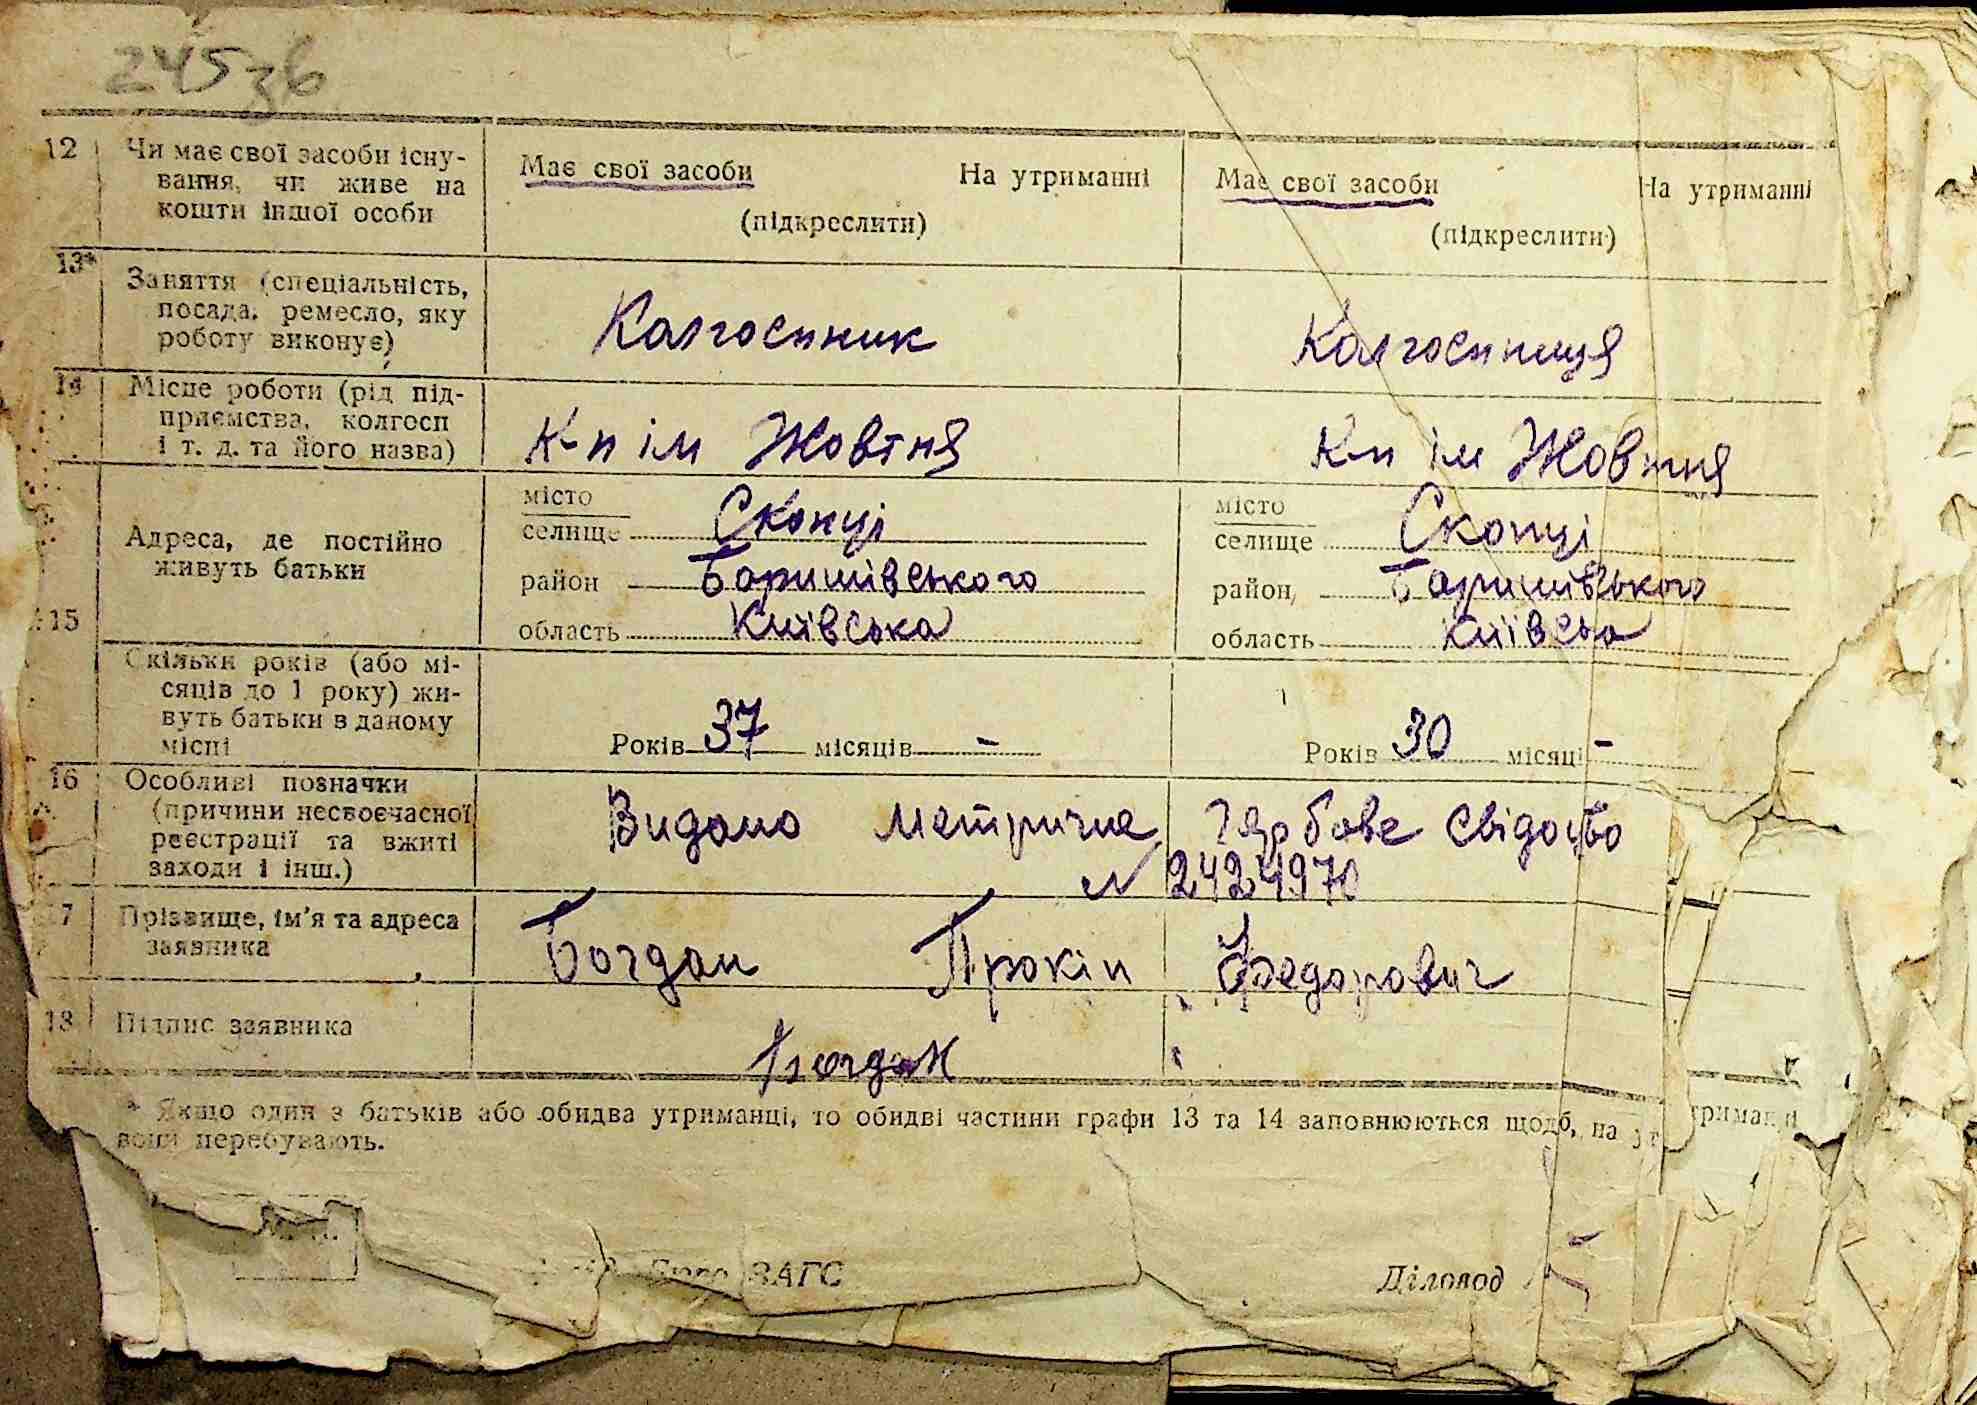 245зв
12 Чи має свої засоби існу-
вання, чи живе на
кошти іншої особи
Має свої засоби На утриманні
(підкреслити)
Має свої засоби На утриманні
(підкреслити)
13* Заняття (спеціальність,
посада, ремесло, яку
роботу виконує)
Колгоспник
Колгоспниця
14 Місце роботи (рід під-
приємства, колгосп
і т. д. та його назва)
К-п ім Жовтня
К-п ім Жовтня
15 Адреса, де постійно
живуть батьки
місто
селище Скопці
район Баришівського
область Київська
місто
селище Скопці
район Баришівського
область Київська
Скільки років (або мі-
сяців до 1 року) жи-
вуть батьки в даному
місці
Років 37 місяців -
Років 30 місяці -
16 Особливі позначки
(причини несвоєчасної
реєстрації та вжиті
заходи і інш.)
Видано метричне гербове свідоство
N 2424970
17 Прізвище, ім'я та адреса
заявника
Богдан Прокіп Федорович
18 Підпис заявника
Богдан
* Якщо один з батьків або обидва утриманці, то обидві частини графи 13 та 14 заповнюються щодо, на
вони перебувають.
Бюро ЗАГС
Діловод